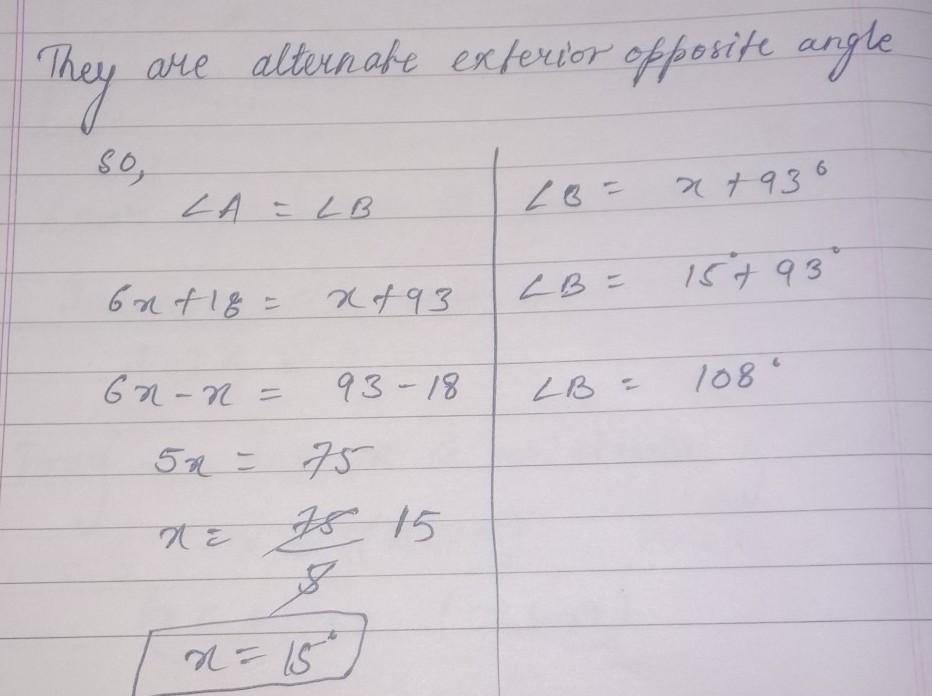 They are alternate exterior opposite angle
so,
∠A = ∠B
6x+18 = x+93
6x-x = 93-18
5x = 75
x = 75/5 15
x = 15°
∠B = x+93°
∠B = 15°+93°
∠B = 108°